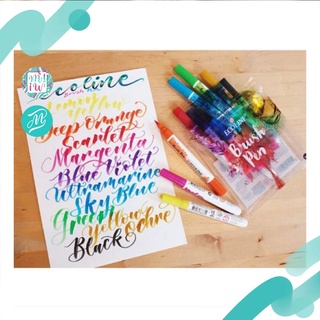 ecoline
Brush Pen
Lemon
Yellow
Deep Orange
Scarlet
Magenta
Blue Violet
Ultramarine
Sky Blue
Green
Yellow
Ochre
Black
ECOLINE
Brush
Pen